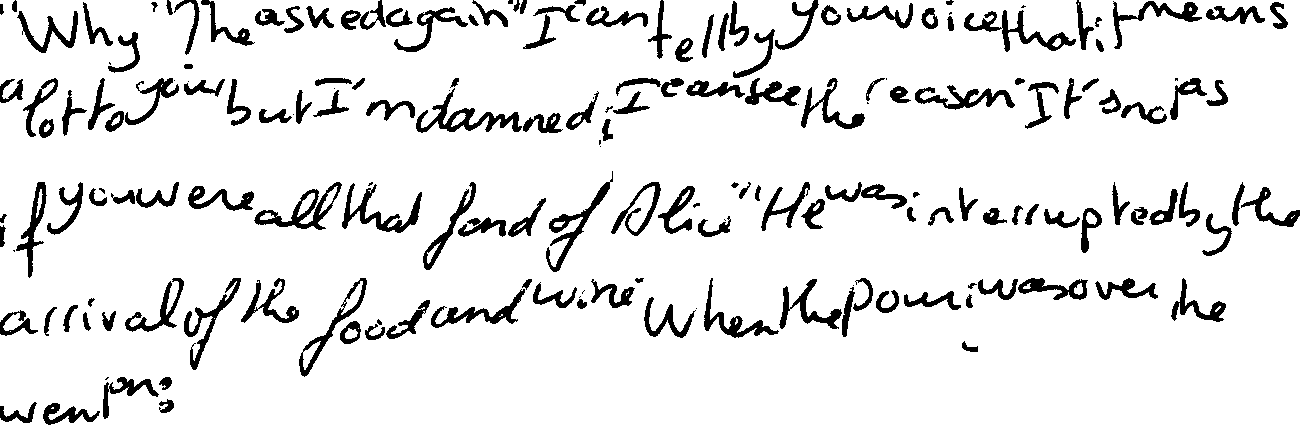 "Why" he asked again "I can tell by your voice that it means
a lot to you, but I'm damned, I can see the reason It's not as
if you were all that fond of Alice" "He was interrupted by the
arrival of the food and wine When the pouri was over he
went on: